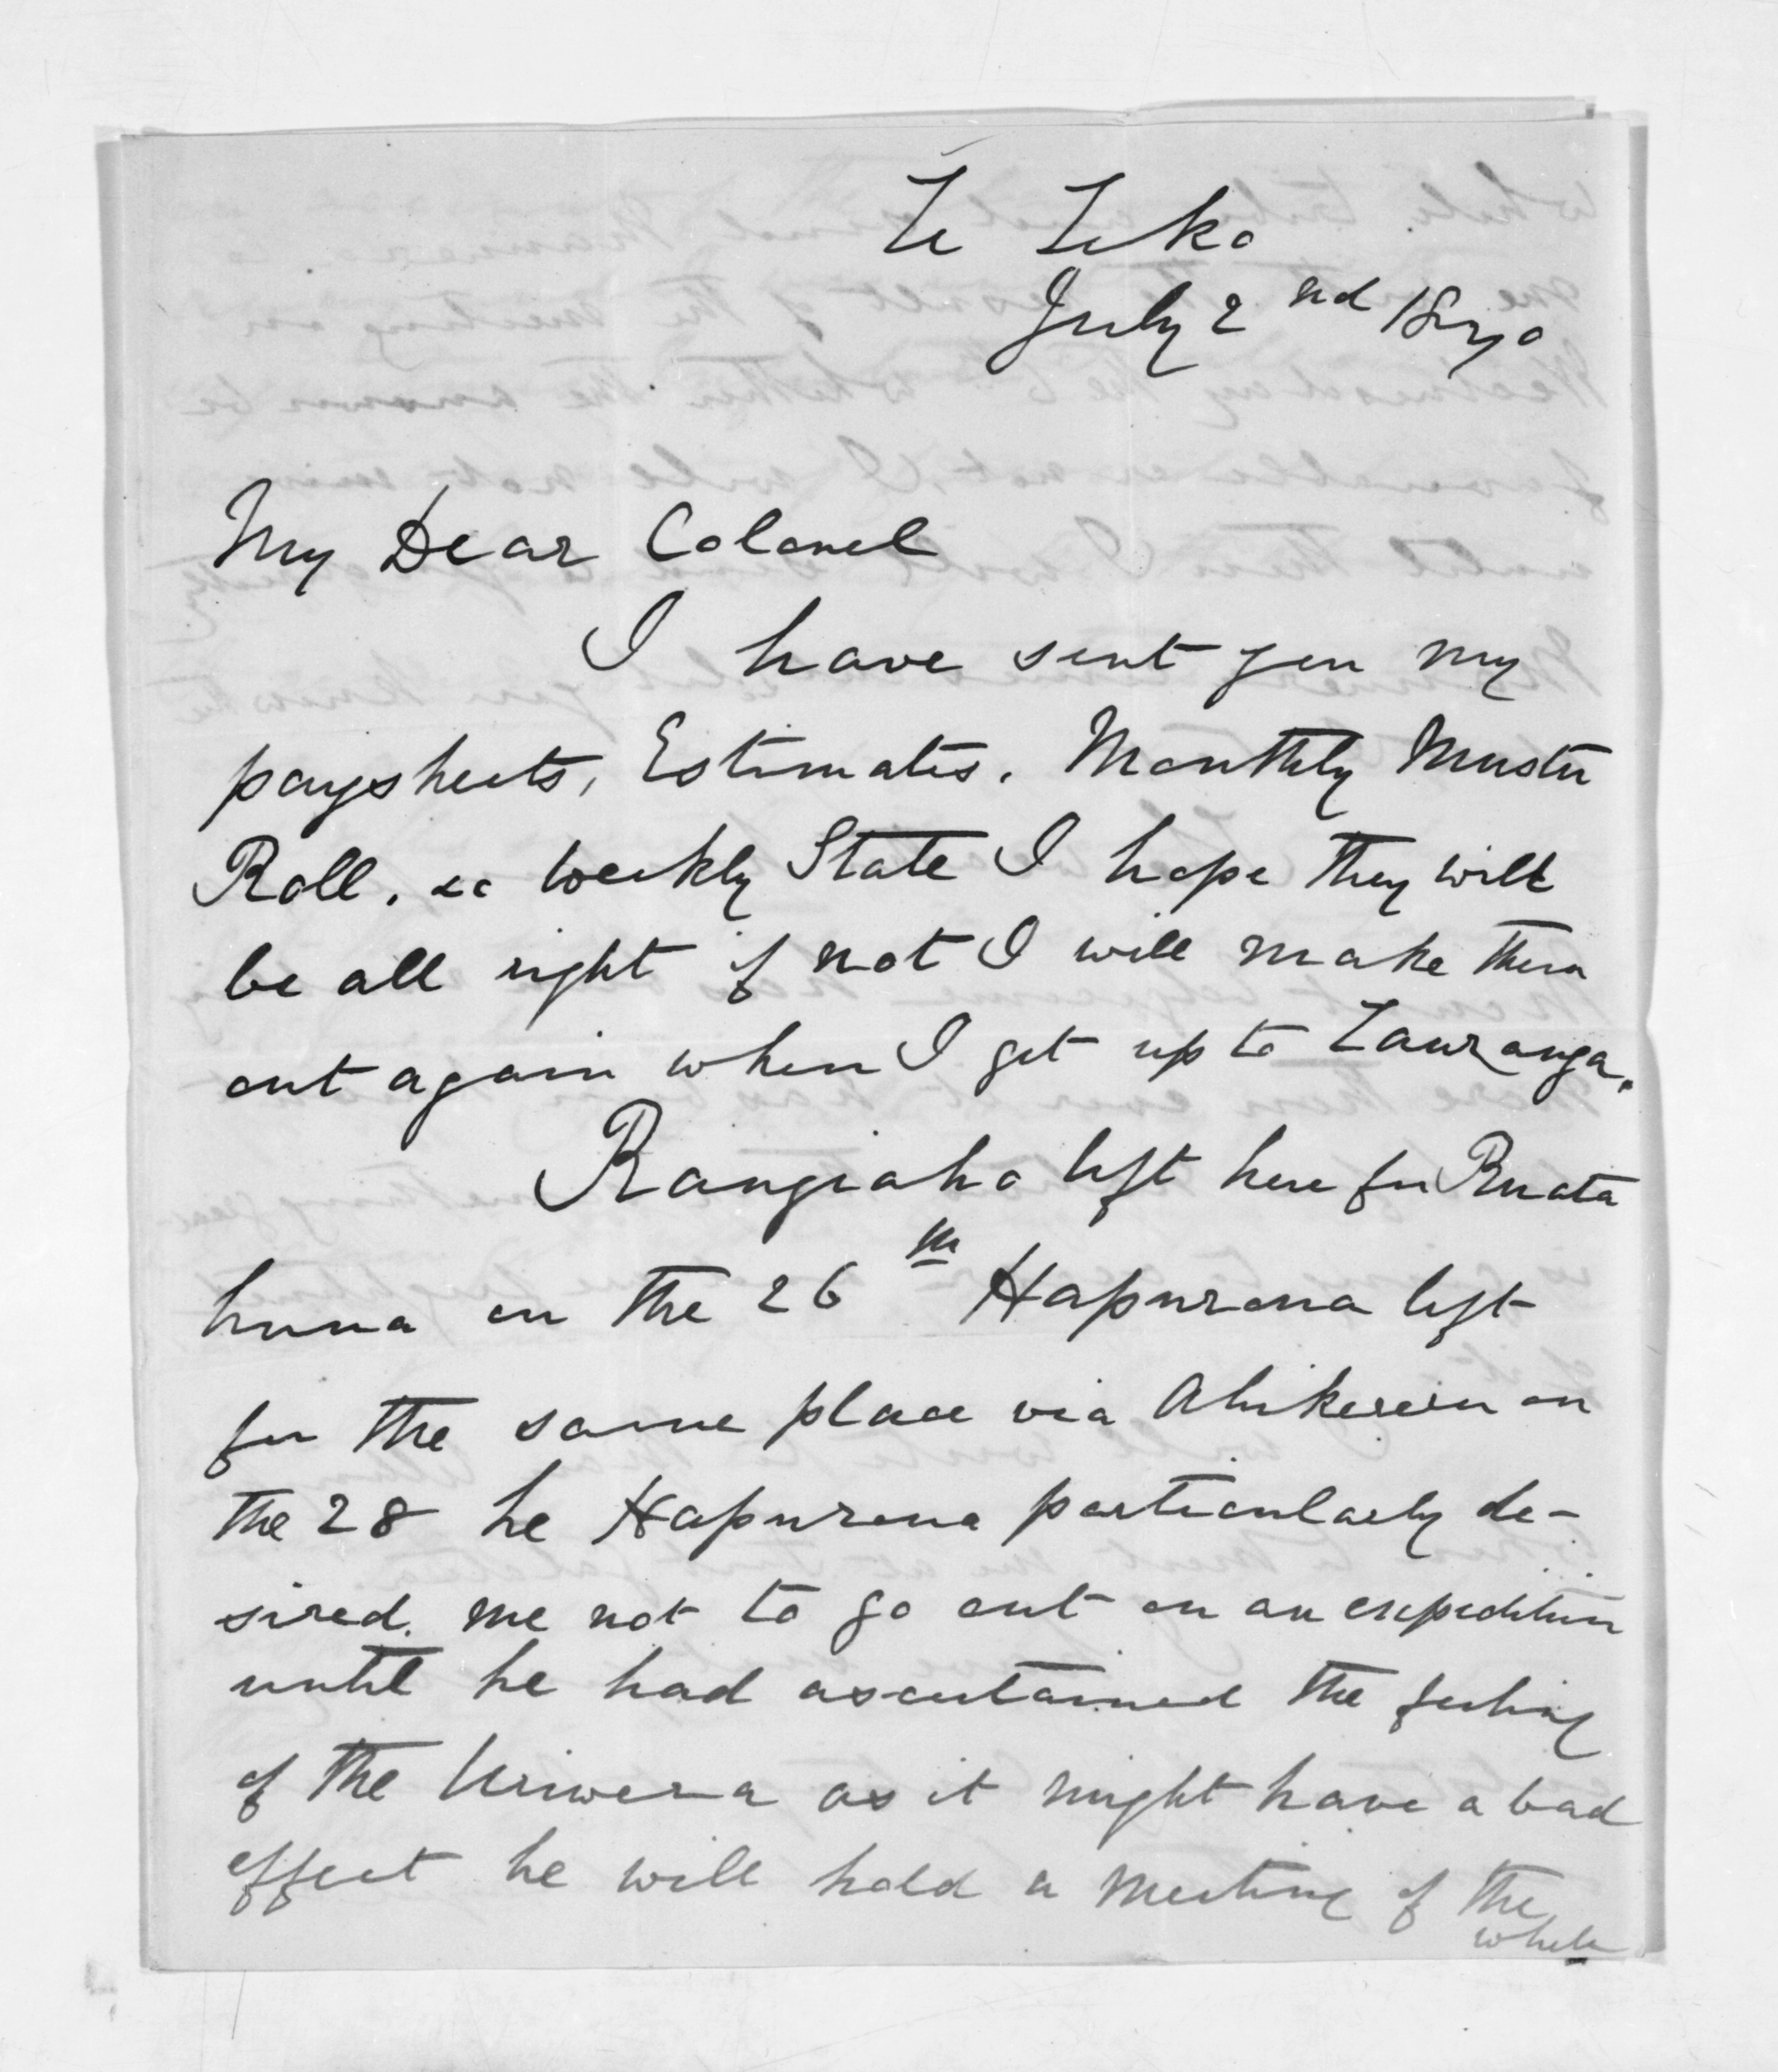 Te Teko
July 2nd 1870
My Dear Colonel
I have sent you my
paysheets, Estimates. Monthly Muster
Roll. &c Weekly State I hope they will
be all right if not I will make them
out again when I get up to Tauranga.
Rangiaho left here for Ruata
huna on the 26th Hapurona left
for the same place via Ahikereru on
the 28 he Hapurona particularly de-
sired. me not to go out on an expedition
until he had ascertained the feeling
of the Uriwera as it might have a bad
effect he will hold a meeting of the
whole